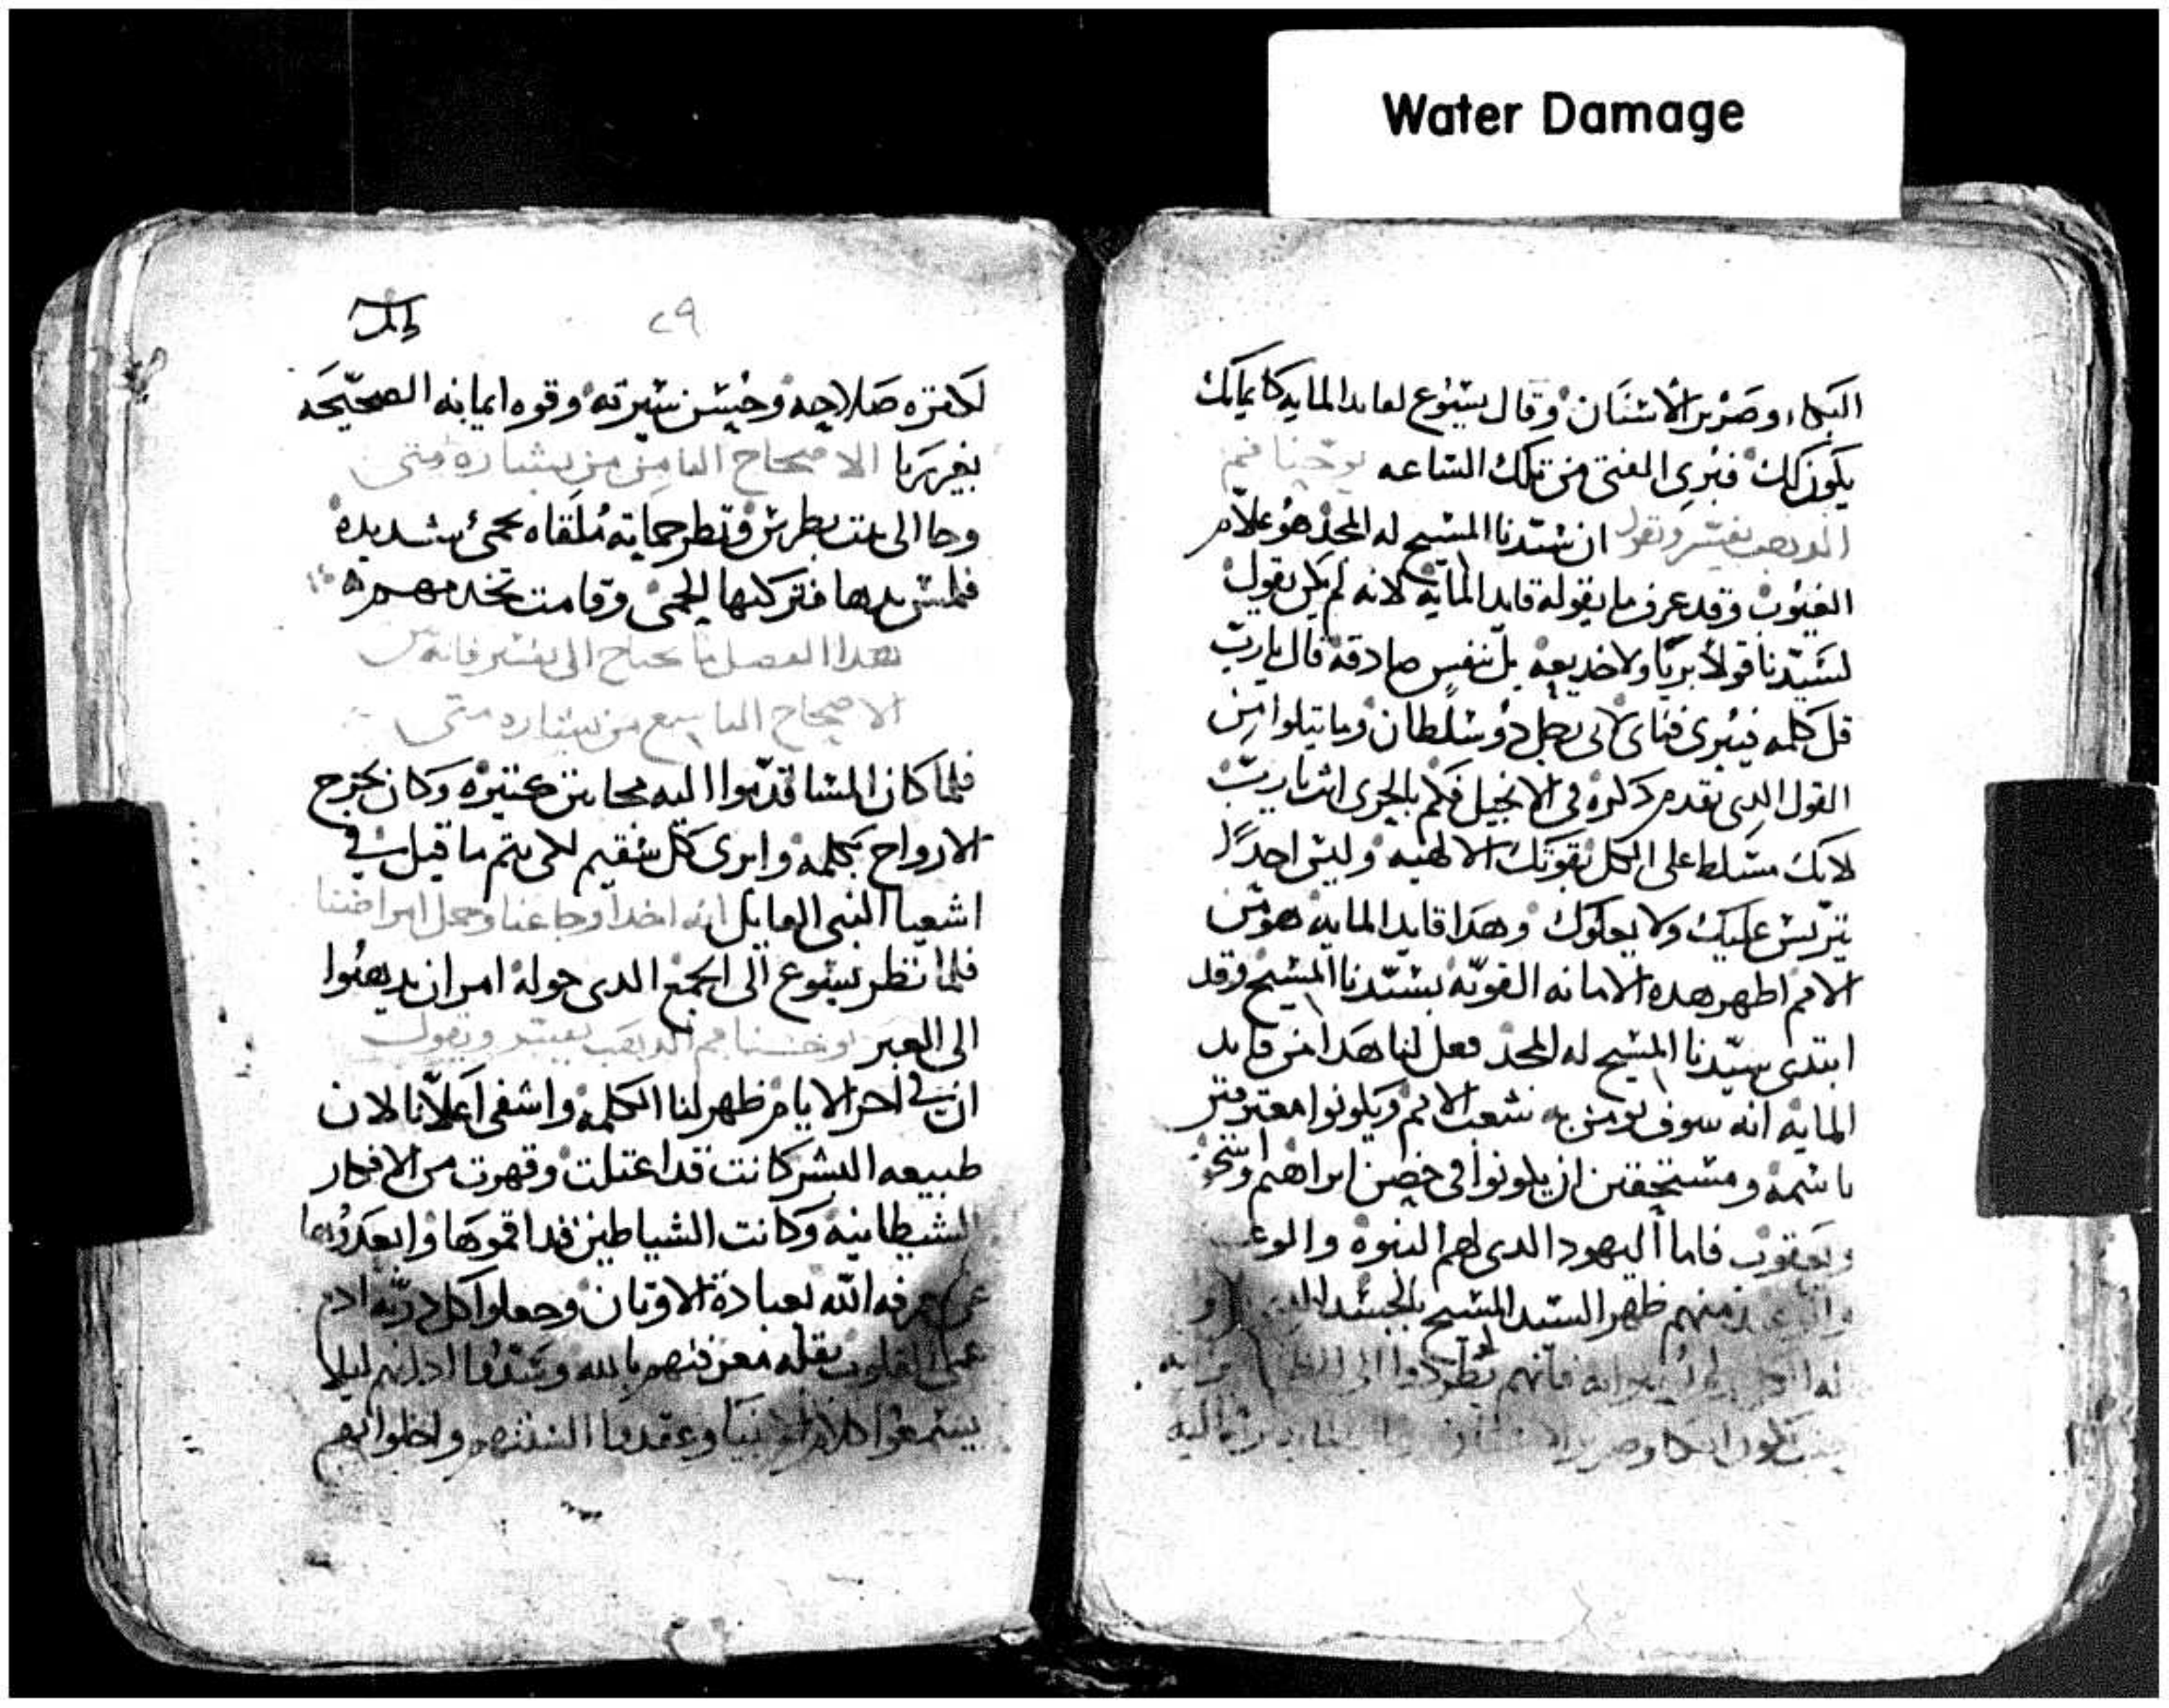 Water Damage
البكاء وصرير الاسنان وقال يسوع لقايد المايه كايمانك
يكون لك فبرى الفتى من تلك الساعه يوحنا فم
الدهب يفسر ويقول ان سيدنا المسيح له المجد هو علام
الغيوب وقد عرف ما يقوله قايد المايه لانه لم يكن يقول
لسيدنا قولا بريا ولا خديعه بل بنفس صادقه قال يارب
قل كلمه فيبرى فتاى لانى رجل دو سلطان وما يتلوا من
القول الدى تقدم دكره فى الانجيل فكم بالحرى انت يارب
لانك متسلط على الكل بقوتك الالهيه وليس احدا
يتريس عليك ولا يعلوك وهدا قايد المايه هو من
الامم اظهر هده الامانه القويه بسيدنا المسيح وقد
ابتدى سيدنا المسيح له المجد فعل لنا هدا من قايد
المايه انه سوف يومن به شعب الامم ويكونوا معترفين
باسمه ومستحقين ان يكونوا فى حضن ابراهيم واسحق
ويعقوب فاما اليهود الدى لهم النبوه والوعد
منهم ظهر السيد المسيح بالجسد
فانهم يطردوا الى
البكا وصرير
٢٩
لكثره صلاحه وحسن سيرته وقوه ايمانه الصحيحه
بغير ريا الاصحاح الثامن من بشاره متى
وجا الى بيت بطرس فنظر حماته ملقاه بحمى شديده
فلمس يدها فتركتها الحمى وقامت تخدمهم
هدا الفصل ما يحتاج الى تفسير فانه
الاصحاح التاسع من بشاره متى
فلما كان المسا قدموا اليه مجانين كتيره وكان يخرج
الارواح بكلمه وابرى كل سقيم لكى يتم ما قيل فى
اشعيا النبى القايل انه اخد اوجاعنا وحمل امراضنا
فلما نظر يسوع الى الجمع الدى حوله امر ان يدهبوا
الى العبر يوحنا فم الدهب يفسر ويقول
ان فى اخر الايام ظهر لنا الكلمه واشفى اعلانا لان
طبيعه البشر كانت قد اعتلت وقهرت من الافكار
الشيطانيه وكانت الشياطين قد اقموها وابعدوها
عن معرفه الله بعبادة الاوتان وجعلوا كل دريه ادم
عمى القلوب بقله معرفتهم بالله وسدوا ادانهم ليلا
يسمعوا كلام الانبيا وعقدوا السنتهم واخلوا بهم